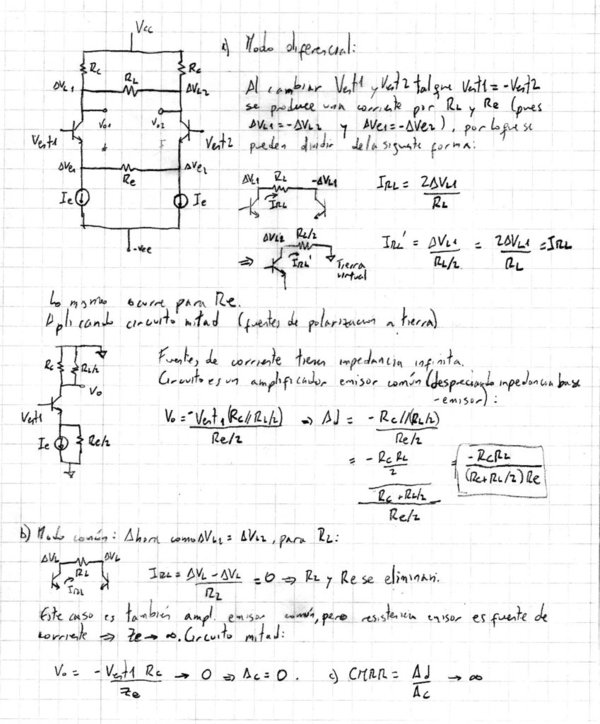 Vcc
a) Modo diferencial:
Rc Rc
ΔVL1 RL ΔVL2
Vo1 Vo2
Vent1 Vent2
ΔVe1 ΔVe2
Re
Ie Ie
-Vee
Al cambiar Vent1 y Vent2 tal que Vent1 = -Vent2
se produce una corriente por RL y Re (pues
ΔVL1 = -ΔVL2 y ΔVe1 = -ΔVe2), por lo que se
pueden dividir de la siguiente forma:
ΔVL1 RL -ΔVL1
IRL
IRL = 2ΔVL1 / RL
ΔVL1 RL/2
⇒ IRL' Tierra
virtual
IRL' = ΔVL1 / RL/2 = 2ΔVL1 / RL = IRL
Lo mismo ocurre para Re.
Aplicando circuito mitad (fuentes de polarización a tierra)
Rc RL/2
Vo
Vent1
Ie Re/2
Fuentes de corriente tienen impedancia infinita.
Circuito es un amplificador emisor común (despreciando impedancia base
-emisor):
Vo = -Vent1 (Rc//RL/2) / Re/2 ⇒ Ad = -Rc//(RL/2) / Re/2
= -Rc RL/2 / Rc+RL/2 / Re/2 = -RcRL / (Rc+RL/2)Re
b) Modo común: Ahora como ΔVL1 = ΔVL2, para RL:
ΔVL ΔVL
RL
IRL
IRL = ΔVL - ΔVL / RL = 0 ⇒ RL y Re se eliminan.
Este caso es también ampl. emisor común, pero resistencia emisor es fuente de
corriente ⇒ Ze → ∞. Circuito mitad:
Vo = -Vent1 Rc / Ze → 0 ⇒ Ac = 0. c) CMRR = Ad / Ac → ∞